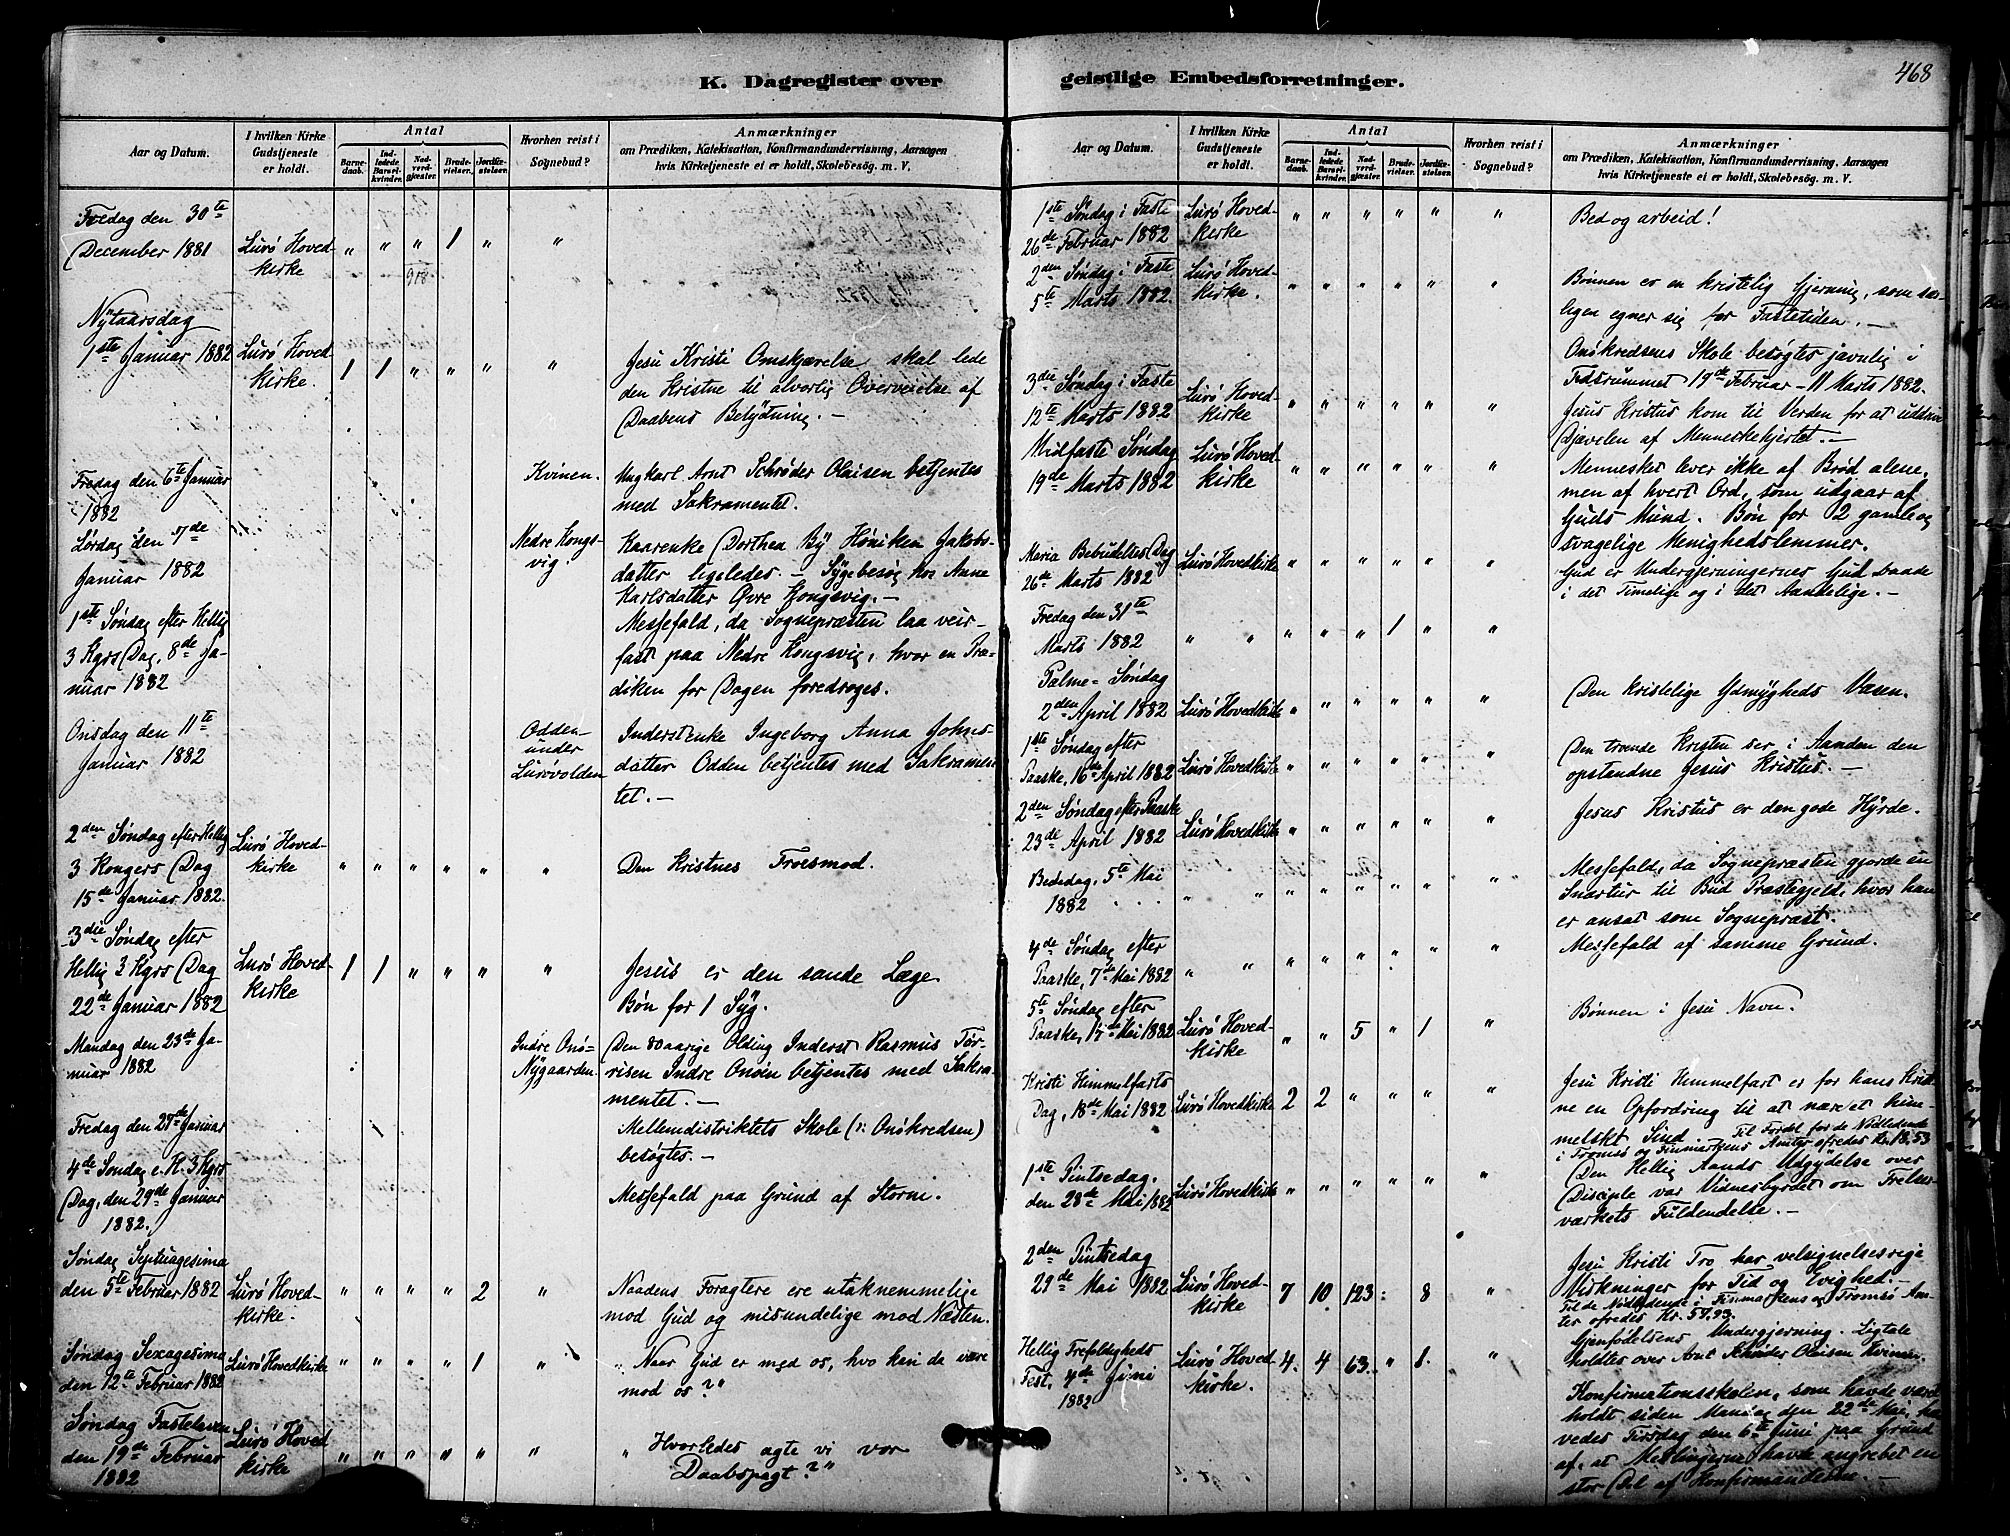 K. Dagregister over geistlige Embedsforretninger.
468
Aar og Datum.
I hvilken Kirke
Gudstjeneste
er holdt.
Antal
Barne-
daab.
Ind-
ledede
Barsel-
kvinder.
Nad-
verd-
gjæster.
Brude-
vielser.
Jordfæ-
stelser.
Hvorhen reist i
Sognebud?
Anmærkninger
om Prædiken, Katekisation, Konfirmandundervisning, Aarsagen
hvis Kirketjeneste ei er holdt, Skolebesøg. m. V.
Fredag den 30te
December 1881
Lurø Hoved-
kirke
" " " 1 " "
908
Nytaarsdag
1ste Januar 1882
Lurø Hoved-
kirke.
1 1 " " " "
Jesu Kristi Omskjærelse skal lede
den Kristne til alvorlig Overveielse af
Daabens Betydning. -
Fredag den 6te Januar
1882
Kvinen.
Ungkarl Arnt Schrøder Olaisen betjentes
med Sakramentet.
Lørdag den 7de
Januar 1882
Nedre Kongs-
vig.
Kaarenke Dorthea By Høniken Jakobs-
datter ligeledes. - Sygebesøg hos Anne
Karlsdatter Øvre Kongsvig. -
1ste Søndag efter Hellig
3 Kgrs Dag, 8de Ja-
nuar 1882
Messefald, da Sognepræsten laa veir-
fast paa Nedre Kongsvig, hvor en Præ-
diken for Dagen foredroges.
Onsdag den 11te
Januar 1882
Odden
under
Lurøvolden
Inderstenke Ingeborg Anna Johns-
datter Odden betjentes med Sakramen
tet. -
2den Søndag efter Hellig
3 Kongers Dag
15de Januar 1882.
Lurø Hoved-
kirke
" " " " " "
Den Kristnes Troesmod.
3die Søndag efter
Hellig 3 Kgrs Dag
22de Januar 1882
Lurø Hoved-
kirke
1 1 " " " "
Jesus er den sande Læge.
Bøn for 1 Syg.
Mandag den 23de Ja-
nuar 1882
Indre Onø-
Nygaarden.
Den 80aarige Olding Inderst Rasmus Tør-
risen Indre Onøen betjentes med Sakra-
mentet. -
Fredag den 27de Januar
Mellemdistriktets Skole (ɔ: Onøkredsen)
besøgtes. -
4de Søndag e. H. 3 Kgrs
Dag, den 29de Januar
1882.
Messefald paa Grund af Storm.
Søndag Septuagesima
den 5te Februar 1882
Lurø Hoved-
kirke.
" " " " 2 "
Naadens Foragtere ere utaknemmelige
mod Gud og misundelige mod Næsten.
Søndag Sexagesima
den 12te Februar 1882
Lurø Hovedkirke
" " " " 1 "
"Naar Gud er med os, hvo kan da være
mod os?"
Søndag Fastelaven
den 19de Februar
1882
Lurø Hoved
kirke
" " " " " "
"Hvorledes agte vi vor
Daabspagt?"
Aar og Datum.
I hvilken Kirke
Gudstjeneste
er holdt.
Antal
Barne-
daab.
Ind-
ledede
Barsel-
kvinder.
Nad-
verd-
gjæster.
Brude-
vielser.
Jordfæ-
stelser.
Hvorhen reist i
Sognebud?
Anmærkninger
om Prædiken, Katekisation, Konfirmandundervisning, Aarsagen
hvis Kirketjeneste ei er holdt, Skolebesøg. m. V.
1ste Søndag i Faste
26de Februar 1882
Lurø Hoved-
kirke
" " " " " "
Bed og arbeid!
2den Søndag i Faste
5te Marts 1882
Lurø Hoved-
kirke.
" " " " " "
Bønnen er en kristelig Gjerning, som sær-
ligen egner sig for Fastetiden. -
Onøkredsens Skole besøgtes jævnlig i
Tidsrummet 19de Februar - 11 Marts 1882.
3die Søndag i Faste
12te Marts 1882
Lurø Hoved-
kirke
" " " " " "
Jesus Kristus kom til Verden for at uddrive
Djævelen af Menneskehjertet. -
Midfaste Søndag
19de Marts 1882
Lurø Hoved-
kirke
" " " " " "
Mennesket lever ikke af Brød alene,
men af hvert Ord, som udgaar af
Guds Mund. Bøn for 2 gamle og
svagelige Menighedslemmer.
Maria Bebudelses Dag
26de Marts 1882
Lurø Hovedkirke
" " " " " "
Gud er Undergjerningernes Gud baade
i det Timelige og i det Aandelige. -
Fredag den 31te
Marts 1882
" " " " " 1 " "
Palme-Søndag
2den April 1882
Lurø Hovedkirke
" " " " " "
Den kristelige Ydmygheds Væsen.
1ste Søndag efter
Paaske, 16de April 1882
Lurø Hovedkirke
" " " " " "
Den troende Kristen ser i Aanden den
opstandne Jesus Kristus. -
2den Søndag efter Paaske
23de April 1882
Lurø Hovedkirke
" " " " " "
Jesus Kristus er den gode Hyrde.
Bededag, 5te Mai
1882
" " " " " " " "
Messefald, da Sognepræsten gjorde en
Snartur til Bud Præstegjeld, hvor han
er ansat som Sognepræst.
4de Søndag efter
Paaske, 7de Mai 1882
" " " " " " " "
Messefald af samme Grund.
5te Søndag efter
Paaske, 14de Mai 1882
Lurø Hoved-
kirke
" " 5 " 1 "
Bønnen i Jesu Navn.
Kristi Himmelfarts
Dag, 18de Mai 1882
Lurø Hovedkirke
2 2 " " " "
Jesu Kristi Himmelfart er for hans Krist-
ne en Opfordring til at nære et him-
melskt Sind. Til Fordel for de Nødlidende
i Tromsø og Finmarkens Amter ofredes Kr. 18,53
1ste Pintsedag.
den 28de Mai 1882
Lurø Hovedkirke
" " " " " "
Den Hellig Aands Udgydelse over
Disciple var Vidnesbyrdet om Frelser-
værkets Fuldendelse. -
2den Pintsedag
29de Mai 1882
Lurø Hoved-
kirke
7 10 123 " 8 "
Jesu Kristi Tro har velsignelsesrige
Virkninger for Tid og Evighed. -
Til de Nødlidende i Finmarkens og Tromsø Am-
ter ofredes Kr. 57,93.
Hellig Trefoldigheds
Fest, 4de Juni
1882
Lurø Hoved-
kirke.
4. 4 63. " 1. "
Gjenfødelsens Undergjerning. Ligtale
holdtes over Arnt Schrøder Olaisen Kvinen.
Konfirmationsskolen, som havde været
holdt siden Mandag den 22de Mai, hæ-
vedes Tirsdag den 6te Juni paa Grund
af, at Meslingerne havde angrebet en
stor Del af Konfirmanderne. -